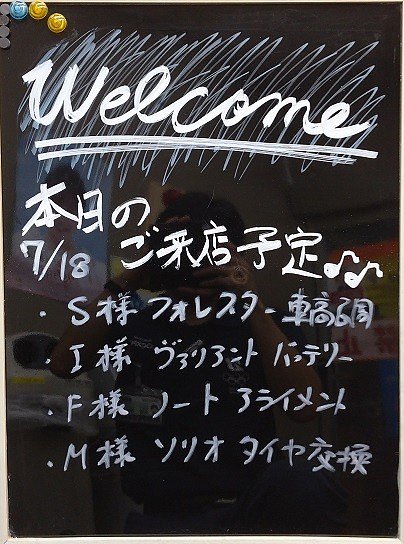 Welcome
本日の
7/18 ご来店予定♪♪
・S様 フォレスター 車高調
・I様 ヴァリアント バッテリー
・F様 ノート アライメント
・M様 ソリオ タイヤ交換